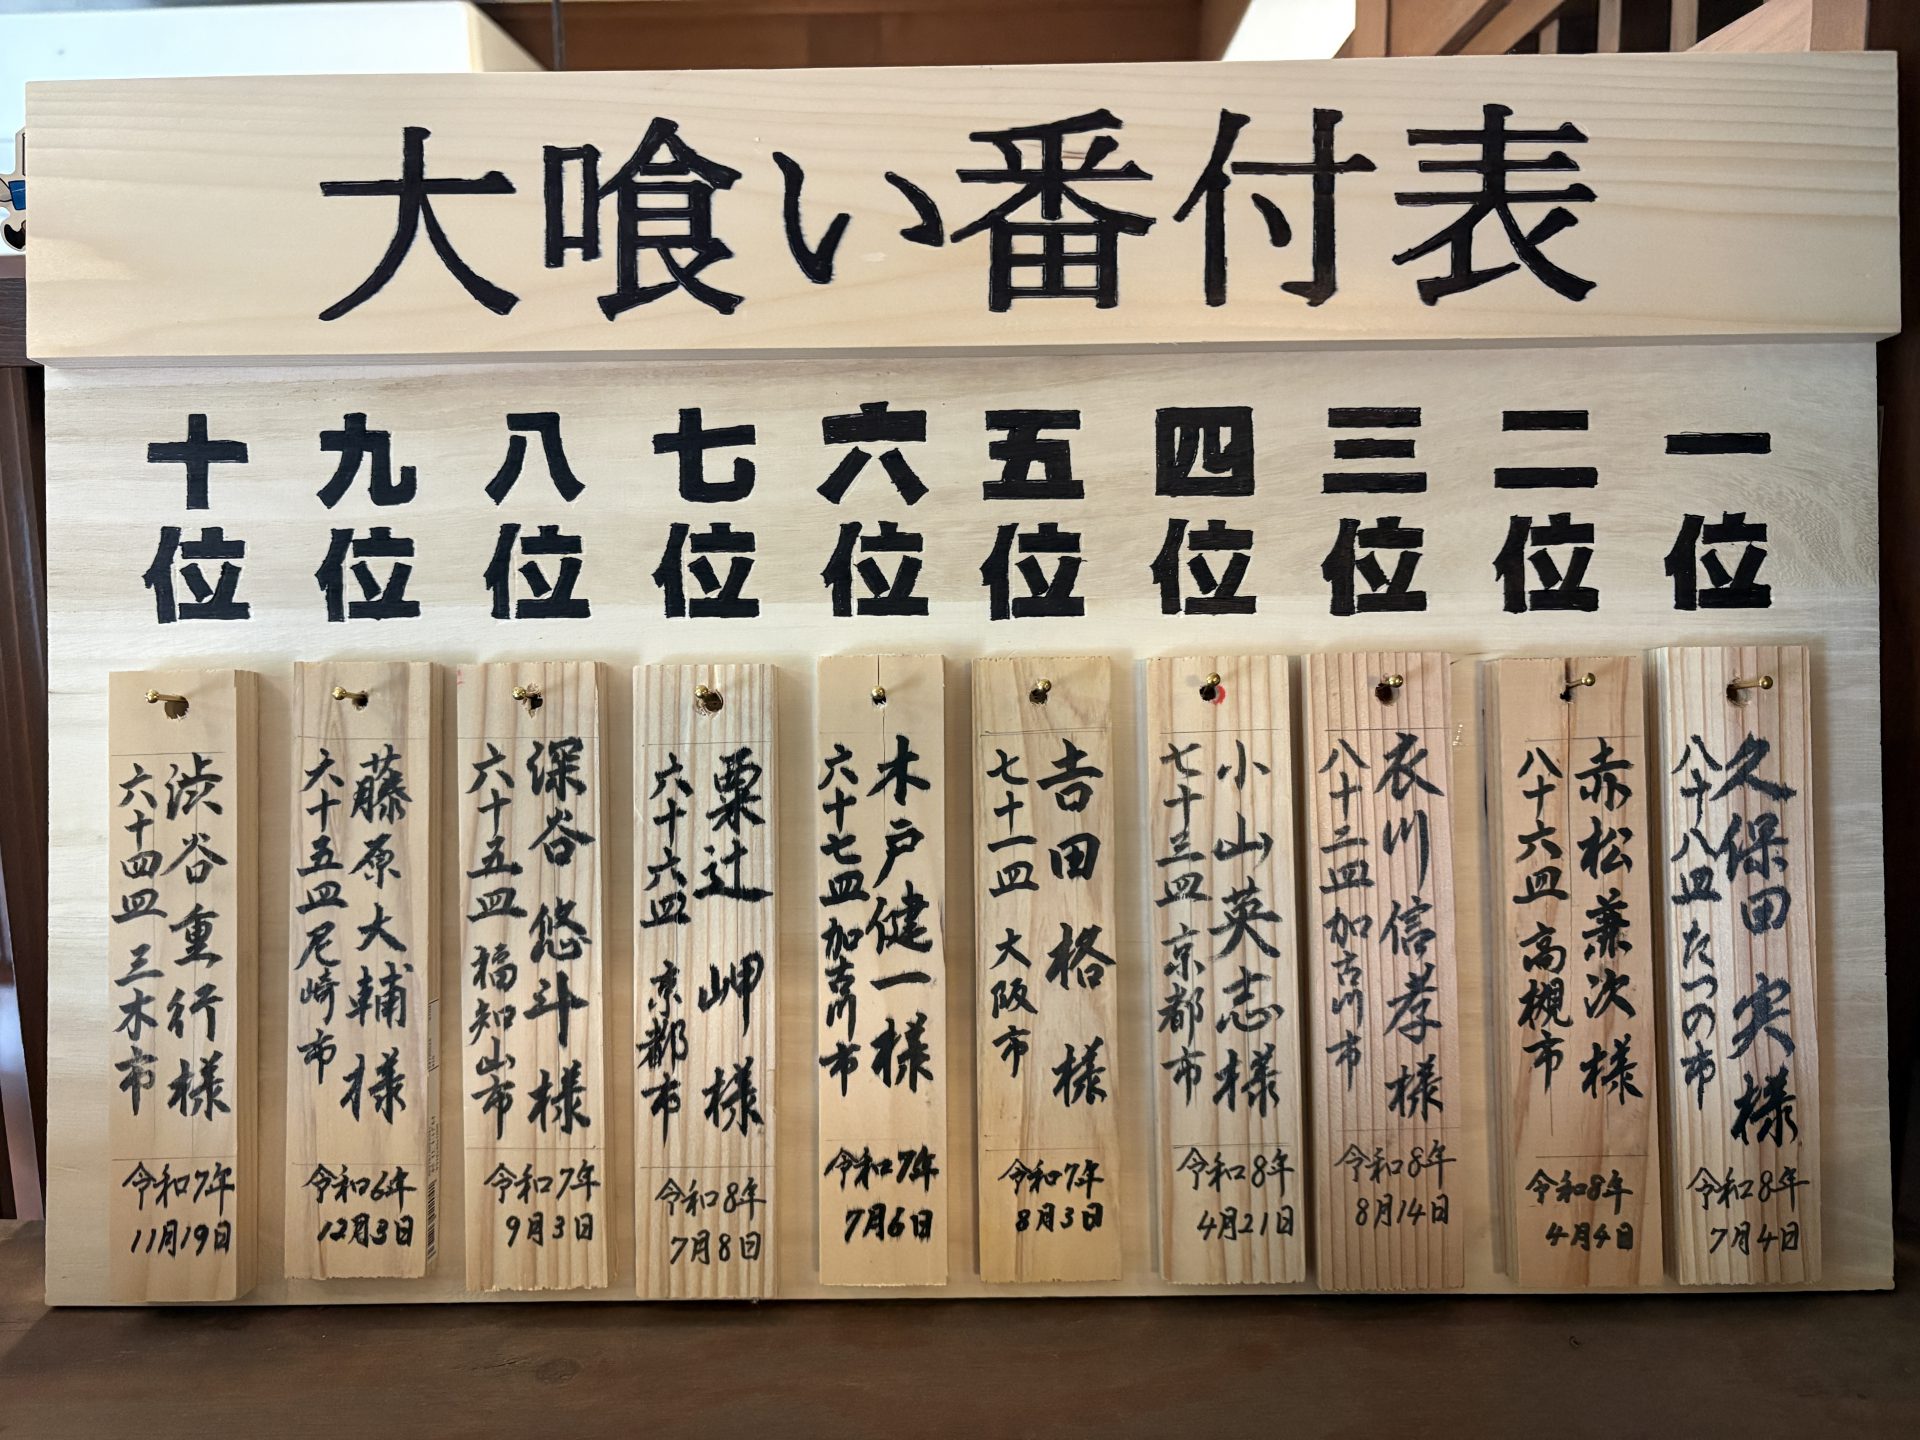 大喰い番付表
一位
久保田 実様
八十八皿 たつの市
令和8年
7月4日
二位
赤松兼次様
八十六皿 高槻市
令和8年
4月4日
三位
衣川信孝様
八十二皿 加古川市
令和8年
8月14日
四位
小山英志様
七十三皿 京都市
令和8年
4月21日
五位
吉田 格 様
七十一皿 大阪市
令和7年
8月3日
六位
木戸健一様
六十七皿 加古川市
令和7年
7月6日
七位
粟辻 岬 様
六十六皿 京都市
令和8年
7月8日
八位
深谷 悠斗様
六十五皿 福知山市
令和7年
9月3日
九位
藤原大輔様
六十五皿 尼崎市
令和6年
12月3日
十位
渋谷重行様
六十四皿 三木市
令和7年
11月19日